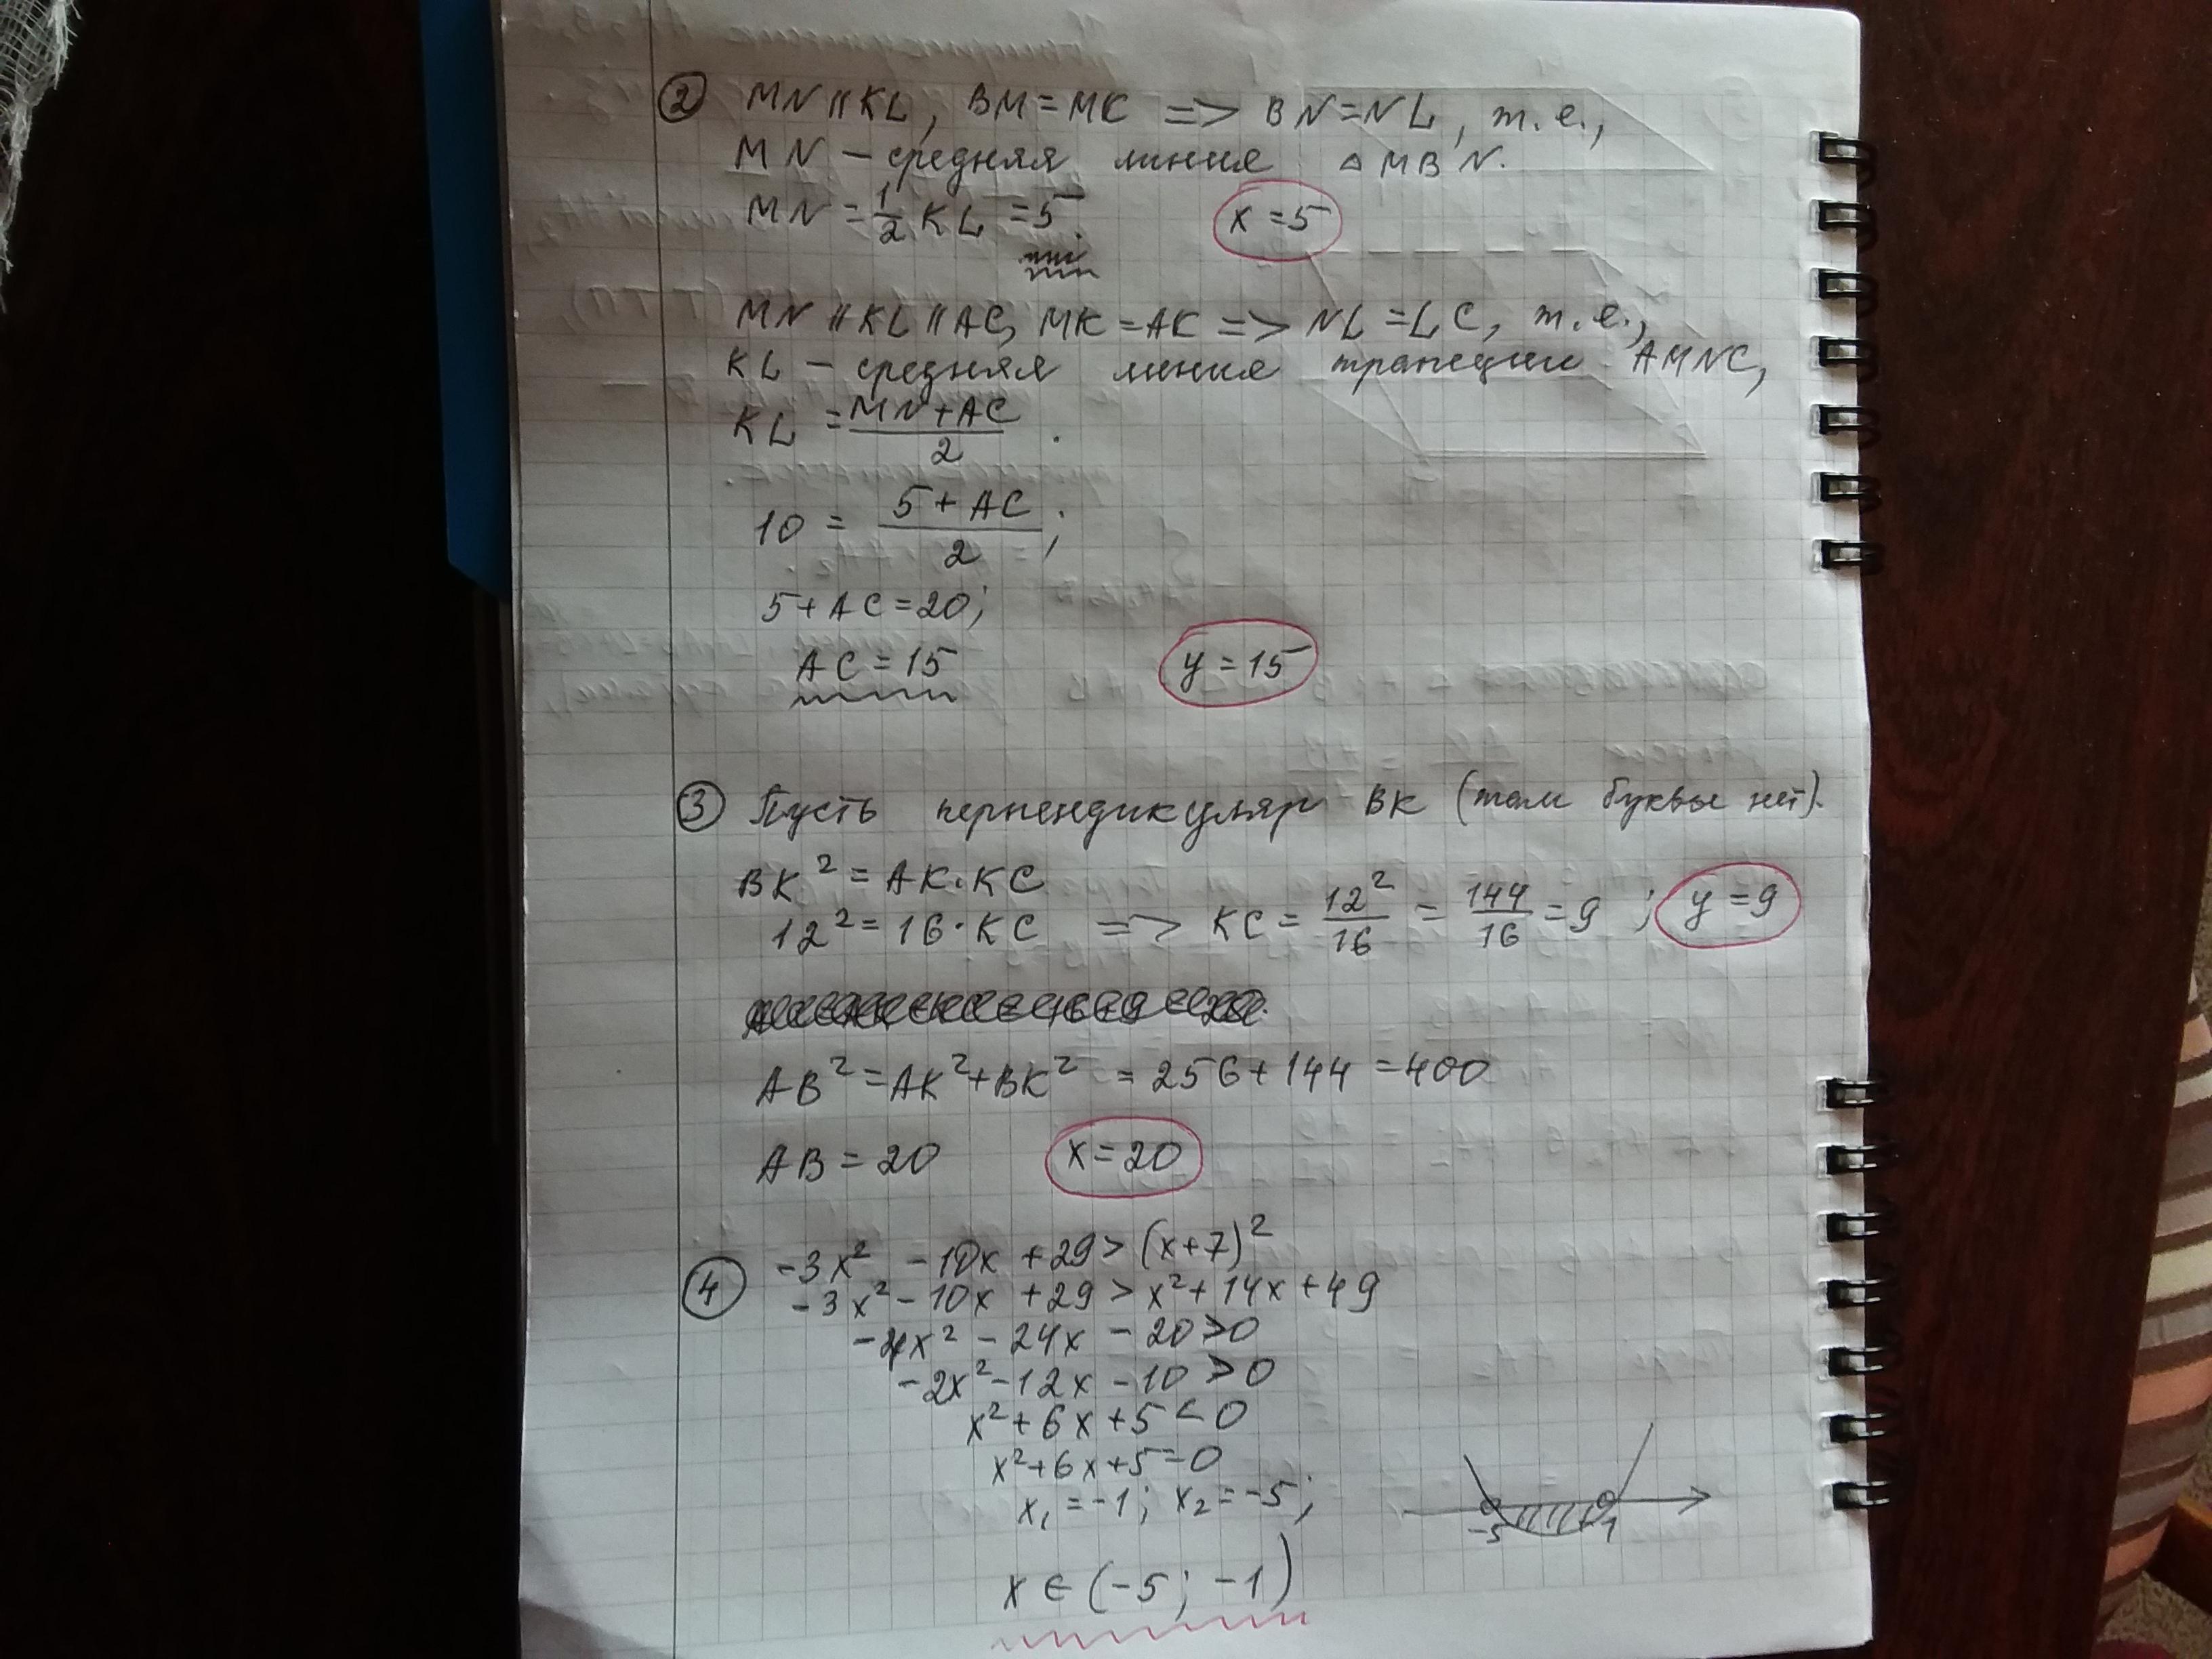 ② MN || KL, BM = MK => BN = NL, т.е.,
MN – средняя линия △ MBN.
MN = 1/2 KL = 5. x = 5
MN || KL || AC, MK = AK => NL = LC, т.е.,
KL – средняя линия трапеции AMNC,
KL = (MN + AC)/2.
10 = (5 + AC)/2;
5 + AC = 20;
AC = 15 y = 15
③ Пусть перпендикуляр BK (там буквы нет).
BK² = AK·KC
12² = 16·KC => KC = 12²/16 = 144/16 = 9; y = 9
AB² = AK² + BK² = 256 + 144 = 400
AB = 20 x = 20
④ -3x² - 10x + 29 > (x+7)²
-3x² - 10x + 29 > x² + 14x + 49
-4x² - 24x - 20 > 0
-2x² - 12x - 10 > 0
x² + 6x + 5 < 0
x² + 6x + 5 = 0
x₁ = -1; x₂ = -5;
-5 -1
x ∈ (-5; -1)